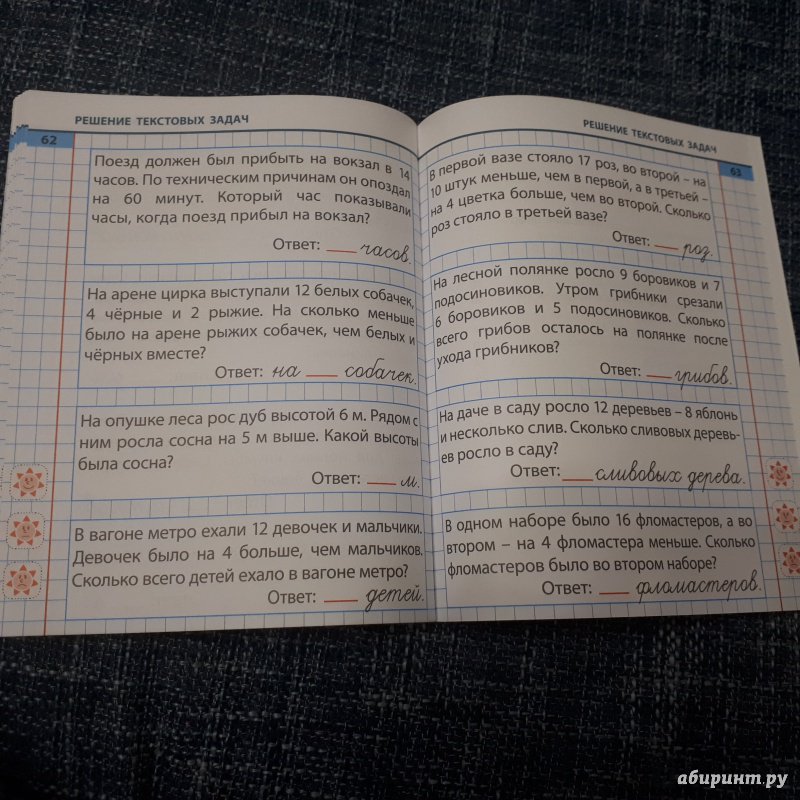 РЕШЕНИЕ ТЕКСТОВЫХ ЗАДАЧ
62
Поезд должен был прибыть на вокзал в 14
часов. По техническим причинам он опоздал
на 60 минут. Который час показывали
часы, когда поезд прибыл на вокзал?
Ответ: ___ часов.
На арене цирка выступали 12 белых собачек,
4 чёрные и 2 рыжие. На сколько меньше
было на арене рыжих собачек, чем белых и
чёрных вместе?
Ответ: на ___ собачек.
На опушке леса рос дуб высотой 6 м. Рядом с
ним росла сосна на 5 м выше. Какой высоты
была сосна?
Ответ: ___ м.
В вагоне метро ехали 12 девочек и мальчики.
Девочек было на 4 больше, чем мальчиков.
Сколько всего детей ехало в вагоне метро?
Ответ: ___ детей.
РЕШЕНИЕ ТЕКСТОВЫХ ЗАДАЧ
63
В первой вазе стояло 17 роз, во второй – на
10 штук меньше, чем в первой, а в третьей –
на 4 цветка больше, чем во второй. Сколько
роз стояло в третьей вазе?
Ответ: ___ роз.
На лесной полянке росло 9 боровиков и 7
подосиновиков. Утром грибники срезали
6 боровиков и 5 подосиновиков. Сколько
всего грибов осталось на полянке после
ухода грибников?
Ответ: ___ грибов.
На даче в саду росло 12 деревьев – 8 яблонь
и несколько слив. Сколько сливовых деревь-
ев росло в саду?
Ответ: ___ сливовых дерева.
В одном наборе было 16 фломастеров, а во
втором – на 4 фломастера меньше. Сколько
фломастеров было во втором наборе?
Ответ: ___ фломастеров.
абиринт.ру